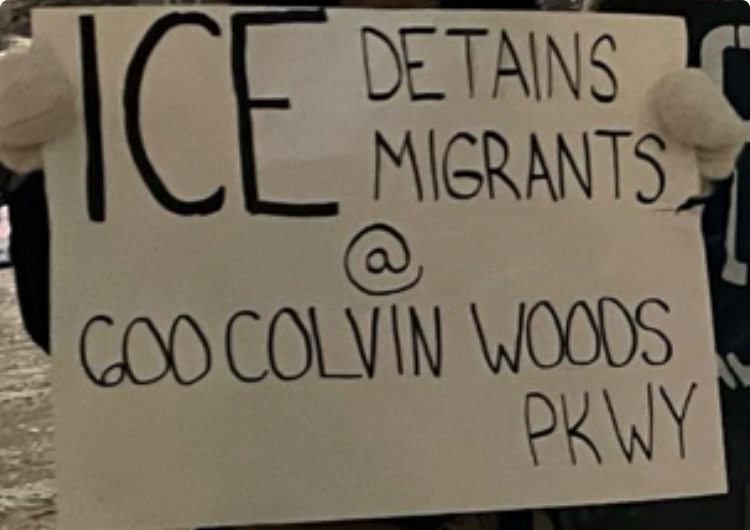 ICE DETAINS
MIGRANTS
@
600 COLVIN WOODS
PKWY